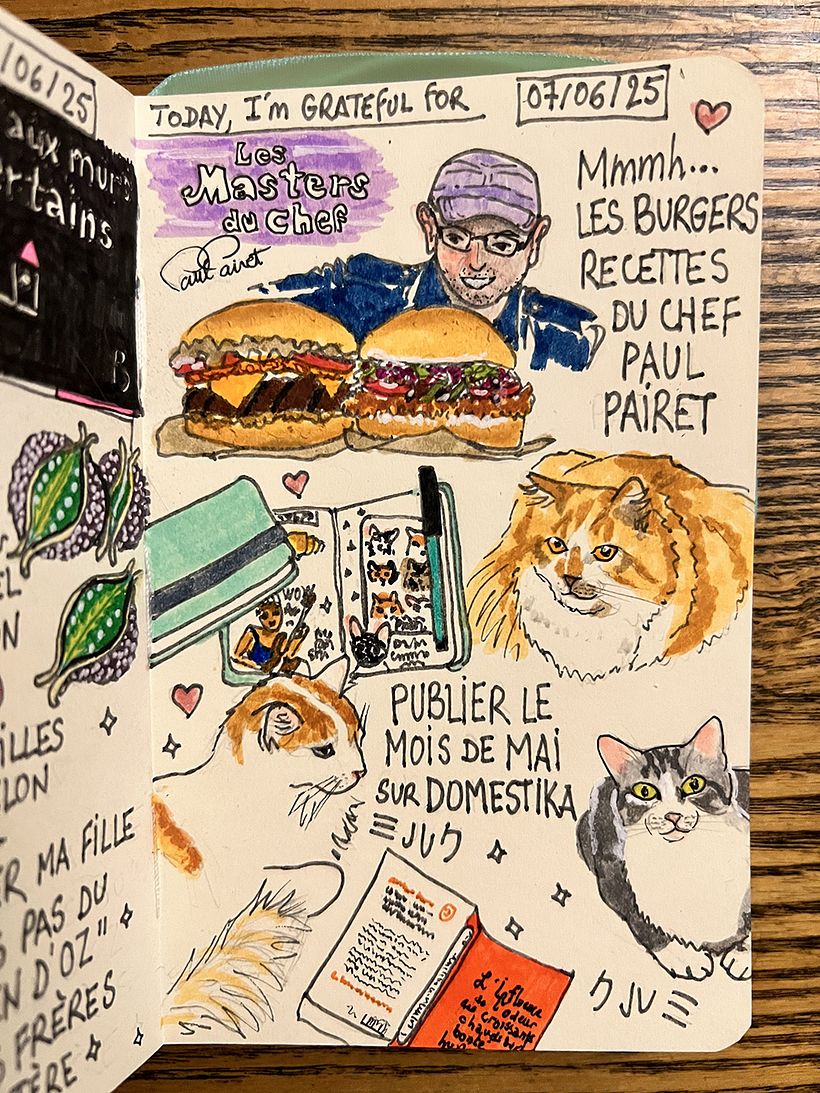 /06/25
aux murs
ertains
B
EL
ON
ILLES
ELON
ER MA FILLE
S PAS DU
EN D'OZ"
S FRÈRES
TÈRE
TODAY, I'M GRATEFUL FOR
07/06/25
Les
Masters
du chef
Paul Pairet
Mmmh...
LES BURGERS
RECETTES
DU CHEF
PAUL
PAIRET
WOW
PUBLIER LE
MOIS DE MAI
SUR DOMESTIKA
L'influence
de l'odeur
des croissants
chauds sur